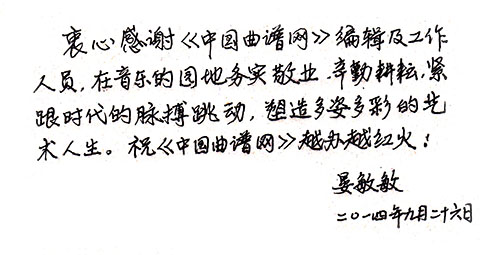 衷心感谢《中国曲谱网》编辑及工作
人员，在音乐的园地务实敬业，辛勤耕耘，紧
跟时代的脉搏跳动，塑造多姿多彩的艺
术人生。祝《中国曲谱网》越办越红火！
晏敏敏
二〇一四年九月二十六日